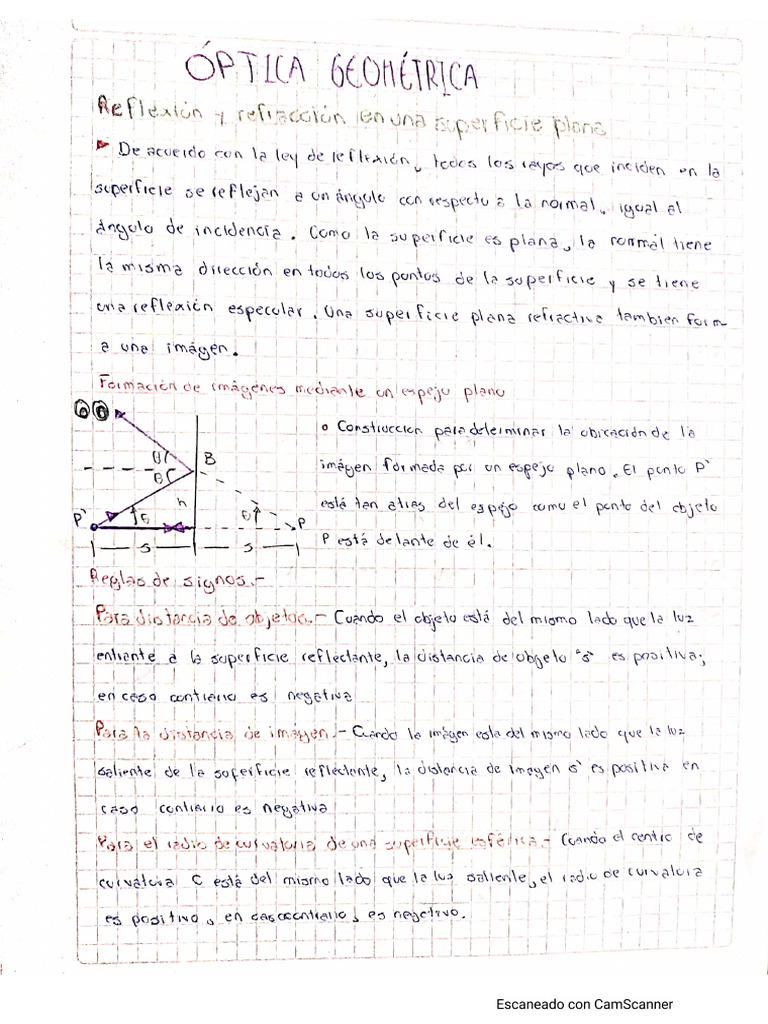 ÓPTICA GEOMÉTRICA
Reflexión y refracción en una superficie plana
De acuerdo con la ley de reflexión, todos los rayos que inciden en la
superficie se reflejan a un ángulo con respecto a la normal, igual al
ángulo de incidencia. Como la superficie es plana, la normal tiene
la misma dirección en todos los puntos de la superficie y se tiene
una reflexión especular. Una superficie plana refractiva tambien form-
a una imágen.
Formación de imágenes mediante un espejo plano
Construccion para determinar la ubicación de la
imágen formada por un espejo plano. El punto P'
está tan atras del espejo como el punto del objeto
P está delante de él.
θ'
θ
B
h
P'
θ
θ'
P
s
s
Reglas de signos.-
Para distancia de objetos.- Cuando el objeto está del mismo lado que la luz
entrante a la superficie reflectante, la distancia de objeto "s" es positiva;
en caso contrario es negativa
Para la distancia de imágen.- Cuando la imágen esta del mismo lado que la luz
saliente de la superficie reflectante, la distancia de imagen s' es positiva en
caso contrario es negativa
Para el radio de curvatura de una superficie esférica.- Cuando el centro de
curvatura C está del mismo lado que la luz saliente, el radio de curvatura
es positivo, en caso contrario, es negativo.
Escaneado con CamScanner